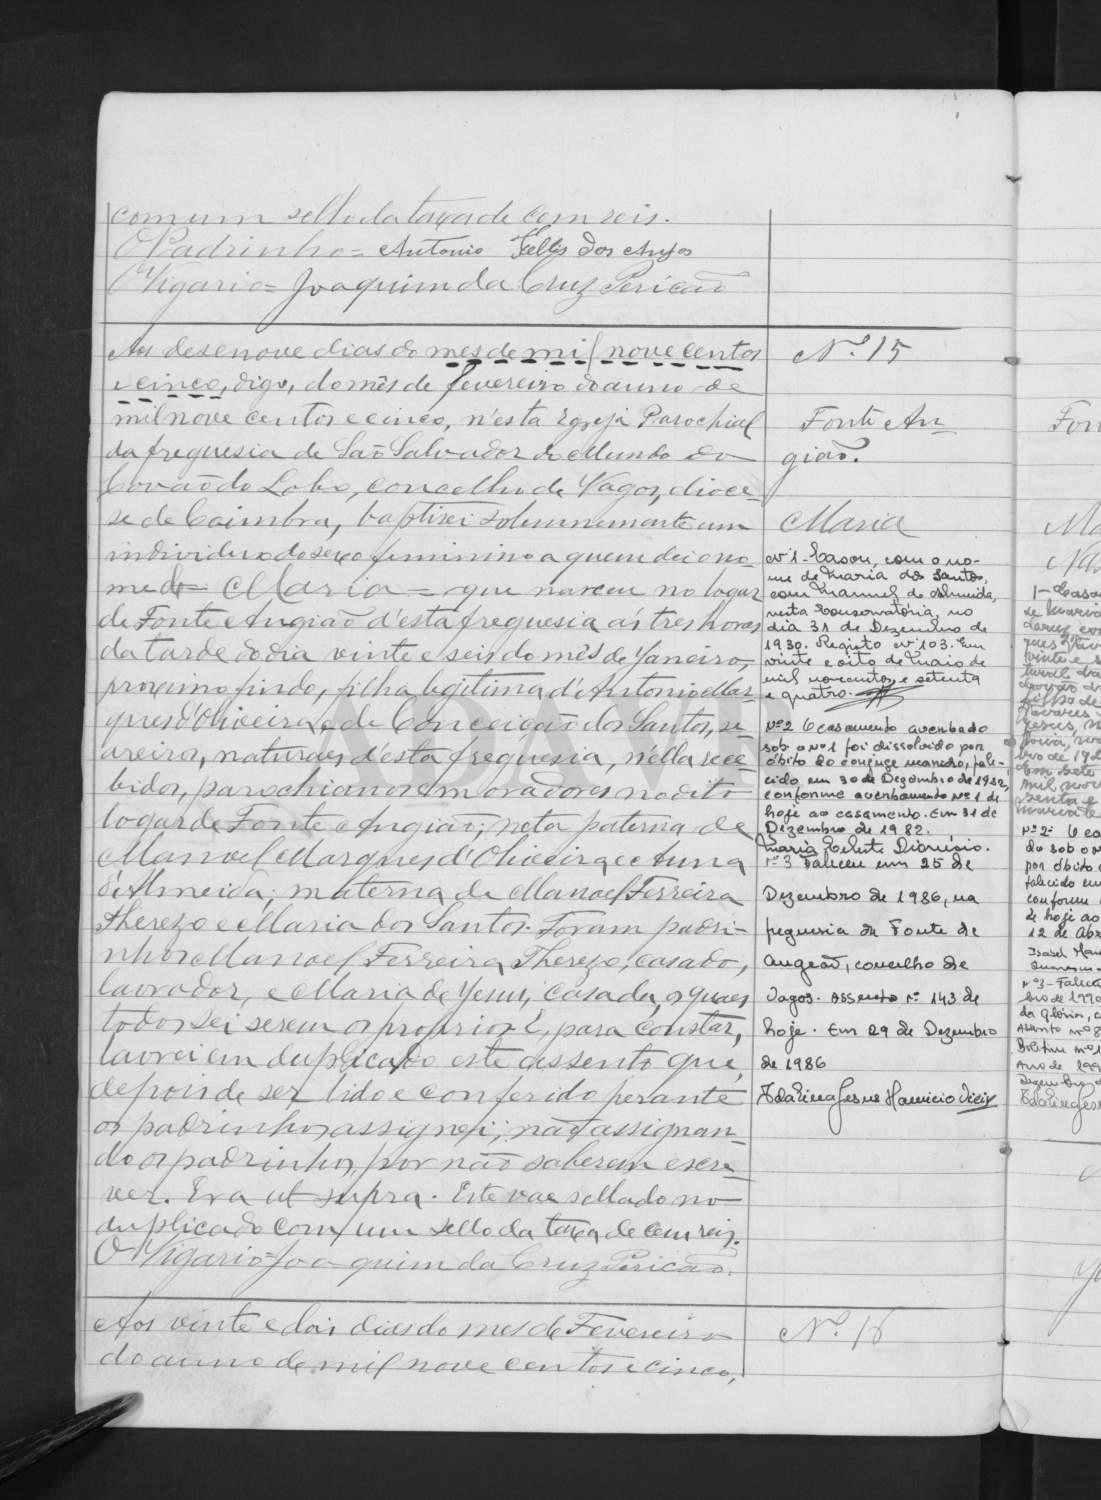 com um sello da taxa de cem reis.
O Padrinho = Antonio Felis dos Anjos
O Vigario = Joaquim da Cruz Pericão
Aos desenove dias do mes de mil nove centos
e cinco, digo, do mês de fevereiro do anno de
mil nove centos e cinco, n'esta Egreja Parochial
da freguesia de São Salvador do Mundo do
Covão do Lobo, concelho de Vagos, dioce-
se de Coimbra, baptisei solemnemente um
individuo do sexo feminino a quem dei o no-
me de = Maria = que nasceu no logar
de Fonte Angião d'esta freguesia ás tres horas
da tarde do dia vinte e seis do mês de Janeiro,
proximo findo, filha legitima d'Antonio Mar-
ques d'Oliveira, e de Conceição dos Santos, se-
areiros, naturaes d'esta freguesia, n'ella rece-
bidos, parochianos e moradores no dito
logar de Fonte Angião; neta paterna de
Manoel Marques d'Oliveira e Anna
d'Almeida; materna de Manoel Ferreira
Therezo e Maria dos Santos. Foram padri-
nhos Manoel Ferreira Therezo, casado,
lavrador, e Maria de Jesus, casada, os quaes
todos sei serem os proprios. E, para constar,
lavrei em duplicado este assento que,
depois de ser lido e conferido perante
os padrinhos, assignei; não assignan-
do os padrinhos, por não saberem escre-
ver. Era ut supra. Este vae sellado no
duplicado com um sello da taxa de cem reis.
O Vigario = Joaquim da Cruz Pericão.
Aos vinte e dois dias do mes de Fevereiro
do anno de mil nove centos e cinco,
Nº 15
Fonte An-
gião.
Maria
Nº 1 - Casou, com o no-
me de Maria dos Santos,
com Manuel de Almeida,
nesta Conservatória, no
dia 31 de Dezembro de
1930. Registo nº 103. Em
vinte e oito de Maio de
mil novecentos e setenta
e quatro.
Nº 2 O casamento averbado
sob o nº 1 foi dissolvido por
óbito do conjuge marido, fale-
cido em 30 de Dezembro de 1982,
conforme averbamento nº 1 de
hoje ao casamento. Em 31 de
Dezembro de 1982.
Maria Dionísio.
nº 3 Faleceu em 25 de
Dezembro de 1986, na
freguesia de Fonte de
Angeão, concelho de
Vagos. Assento nº 143 de
hoje. Em 29 de Dezembro
de 1986
Nº 16